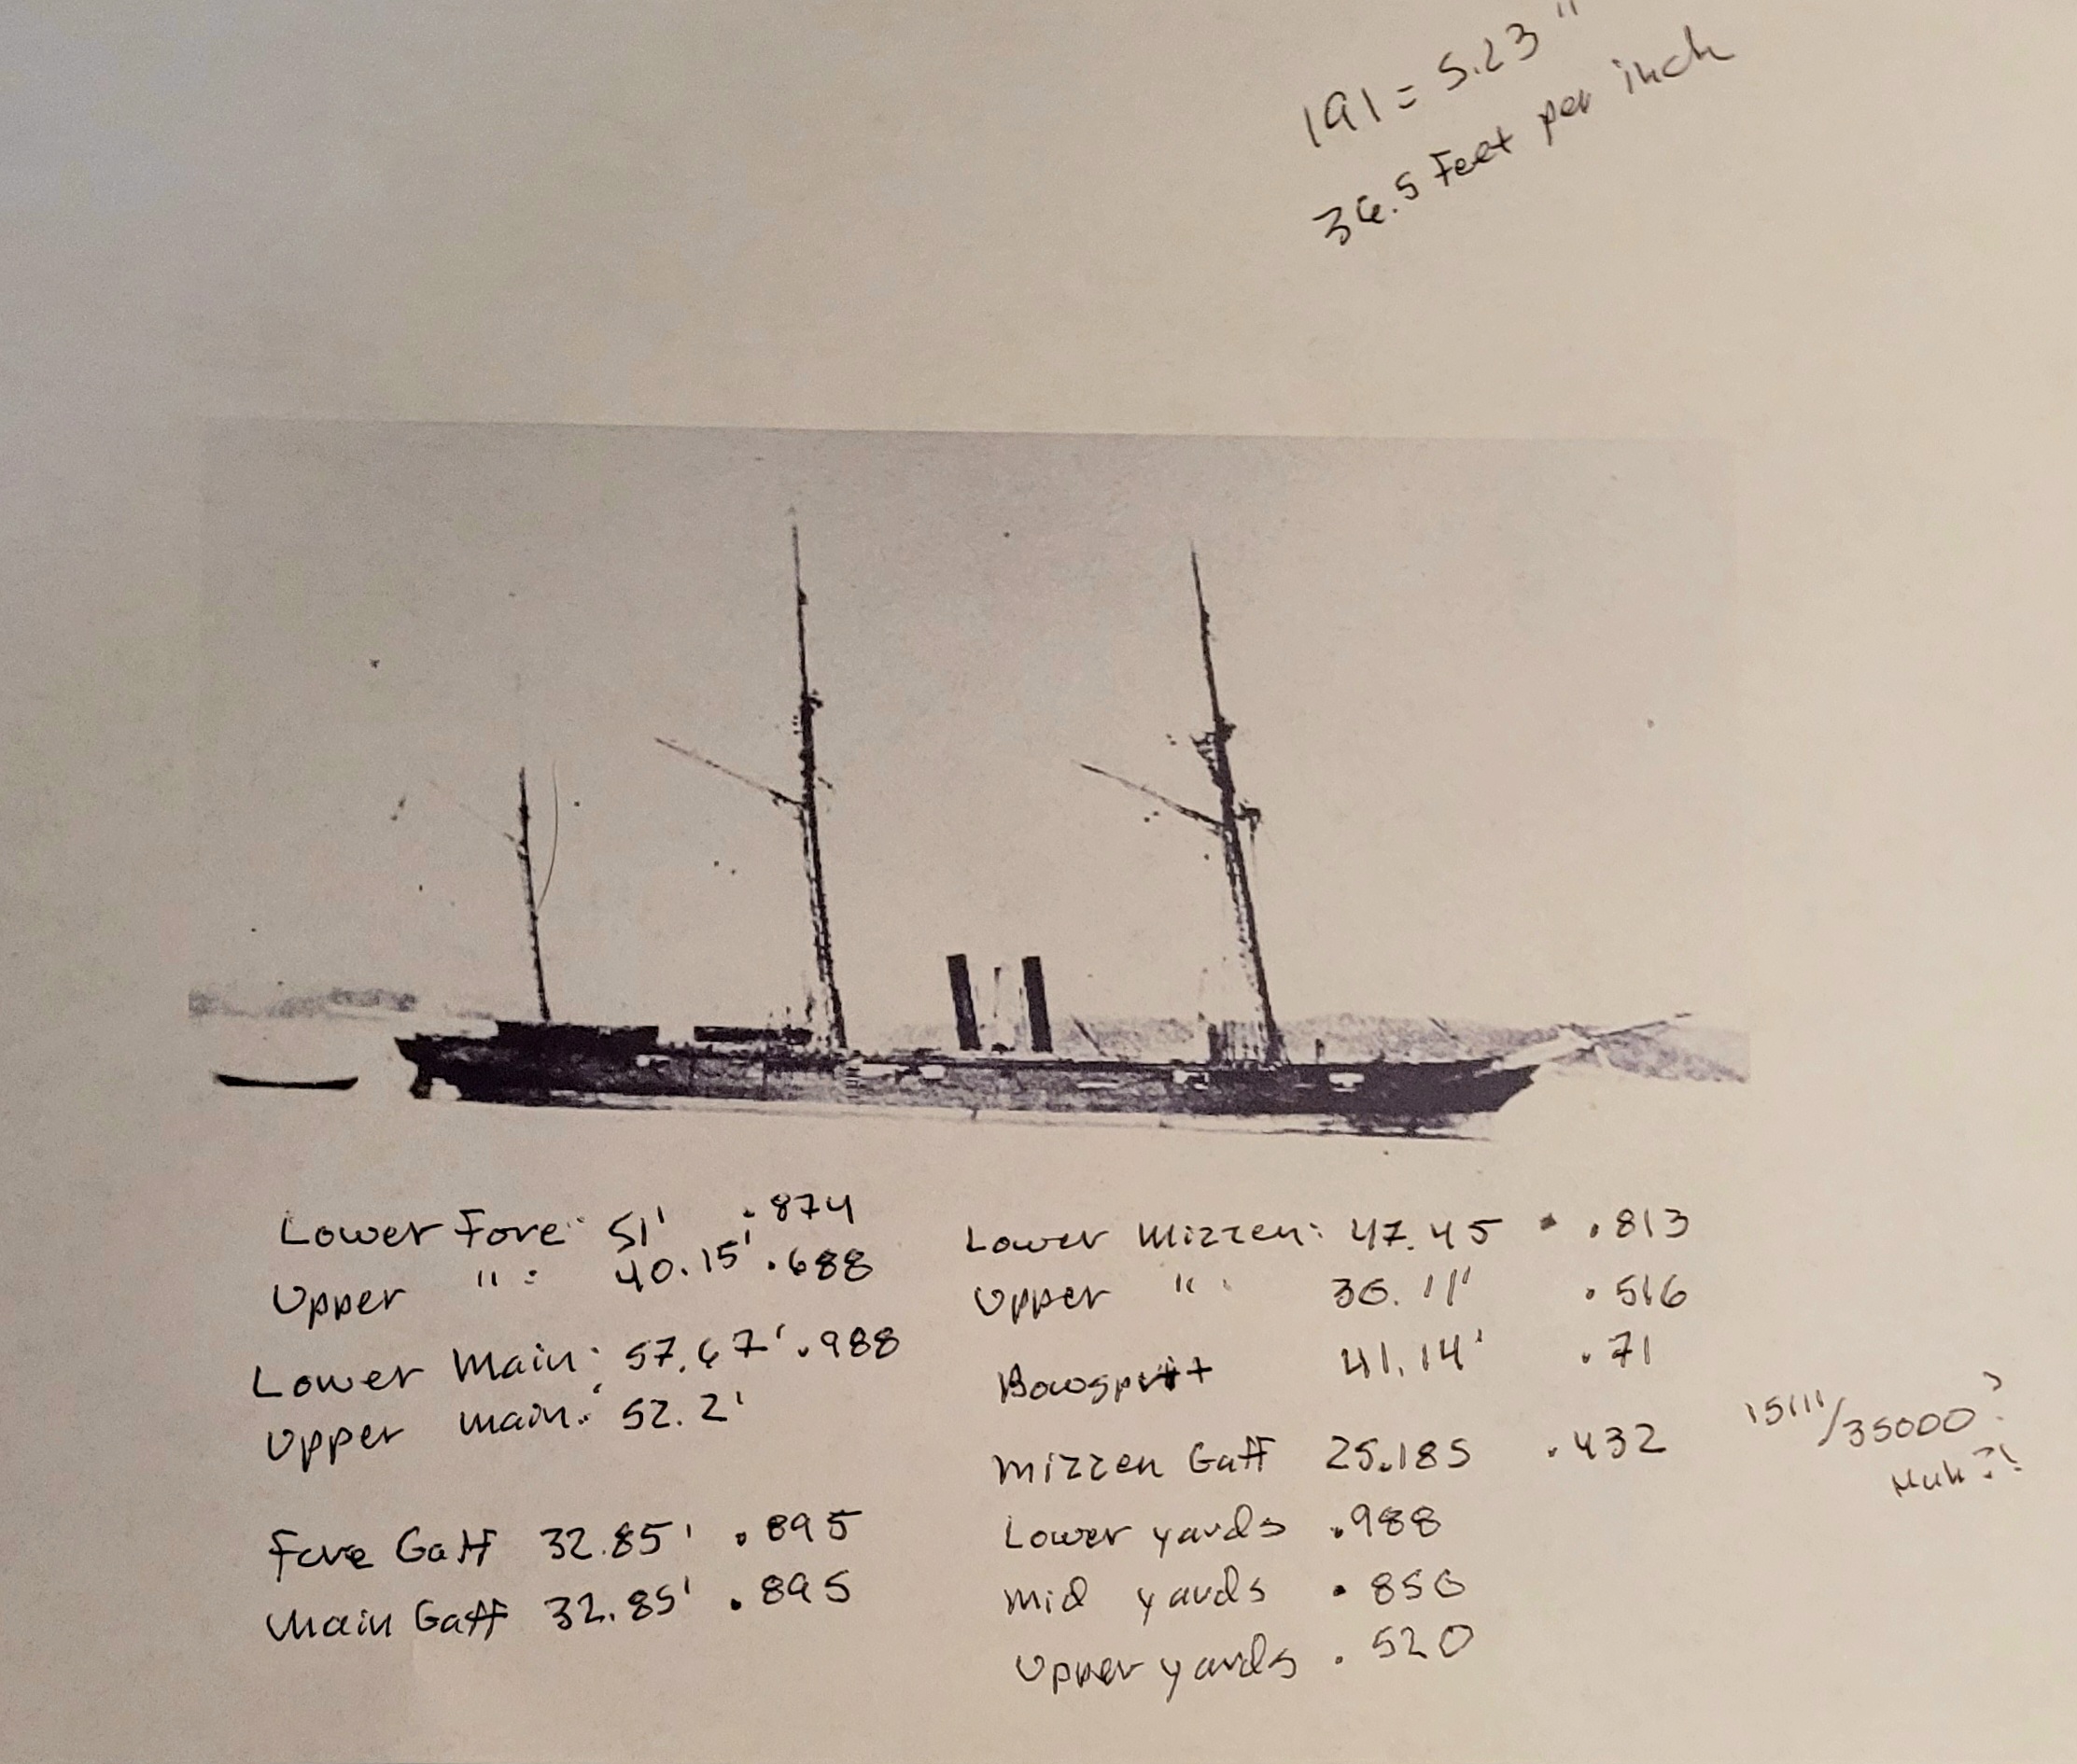 191 = 5.23"
36.5 Feet per inch
Lower Fore: 51' .874
Upper " : 40.15' .688
Lower Main: 57.67' .988
Upper main: 52.2'
Fore Gaff 32.85' .895
Main Gaff 32.85' .895
Lower Mizzen: 47.45 .813
Upper " : 30.11' .516
Bowsprit 41.14' .71
Mizzen Gaff 25.185 .432
Lower yards .988
Mid yards .850
Upper yards .520
15111/35000?
Huh?!